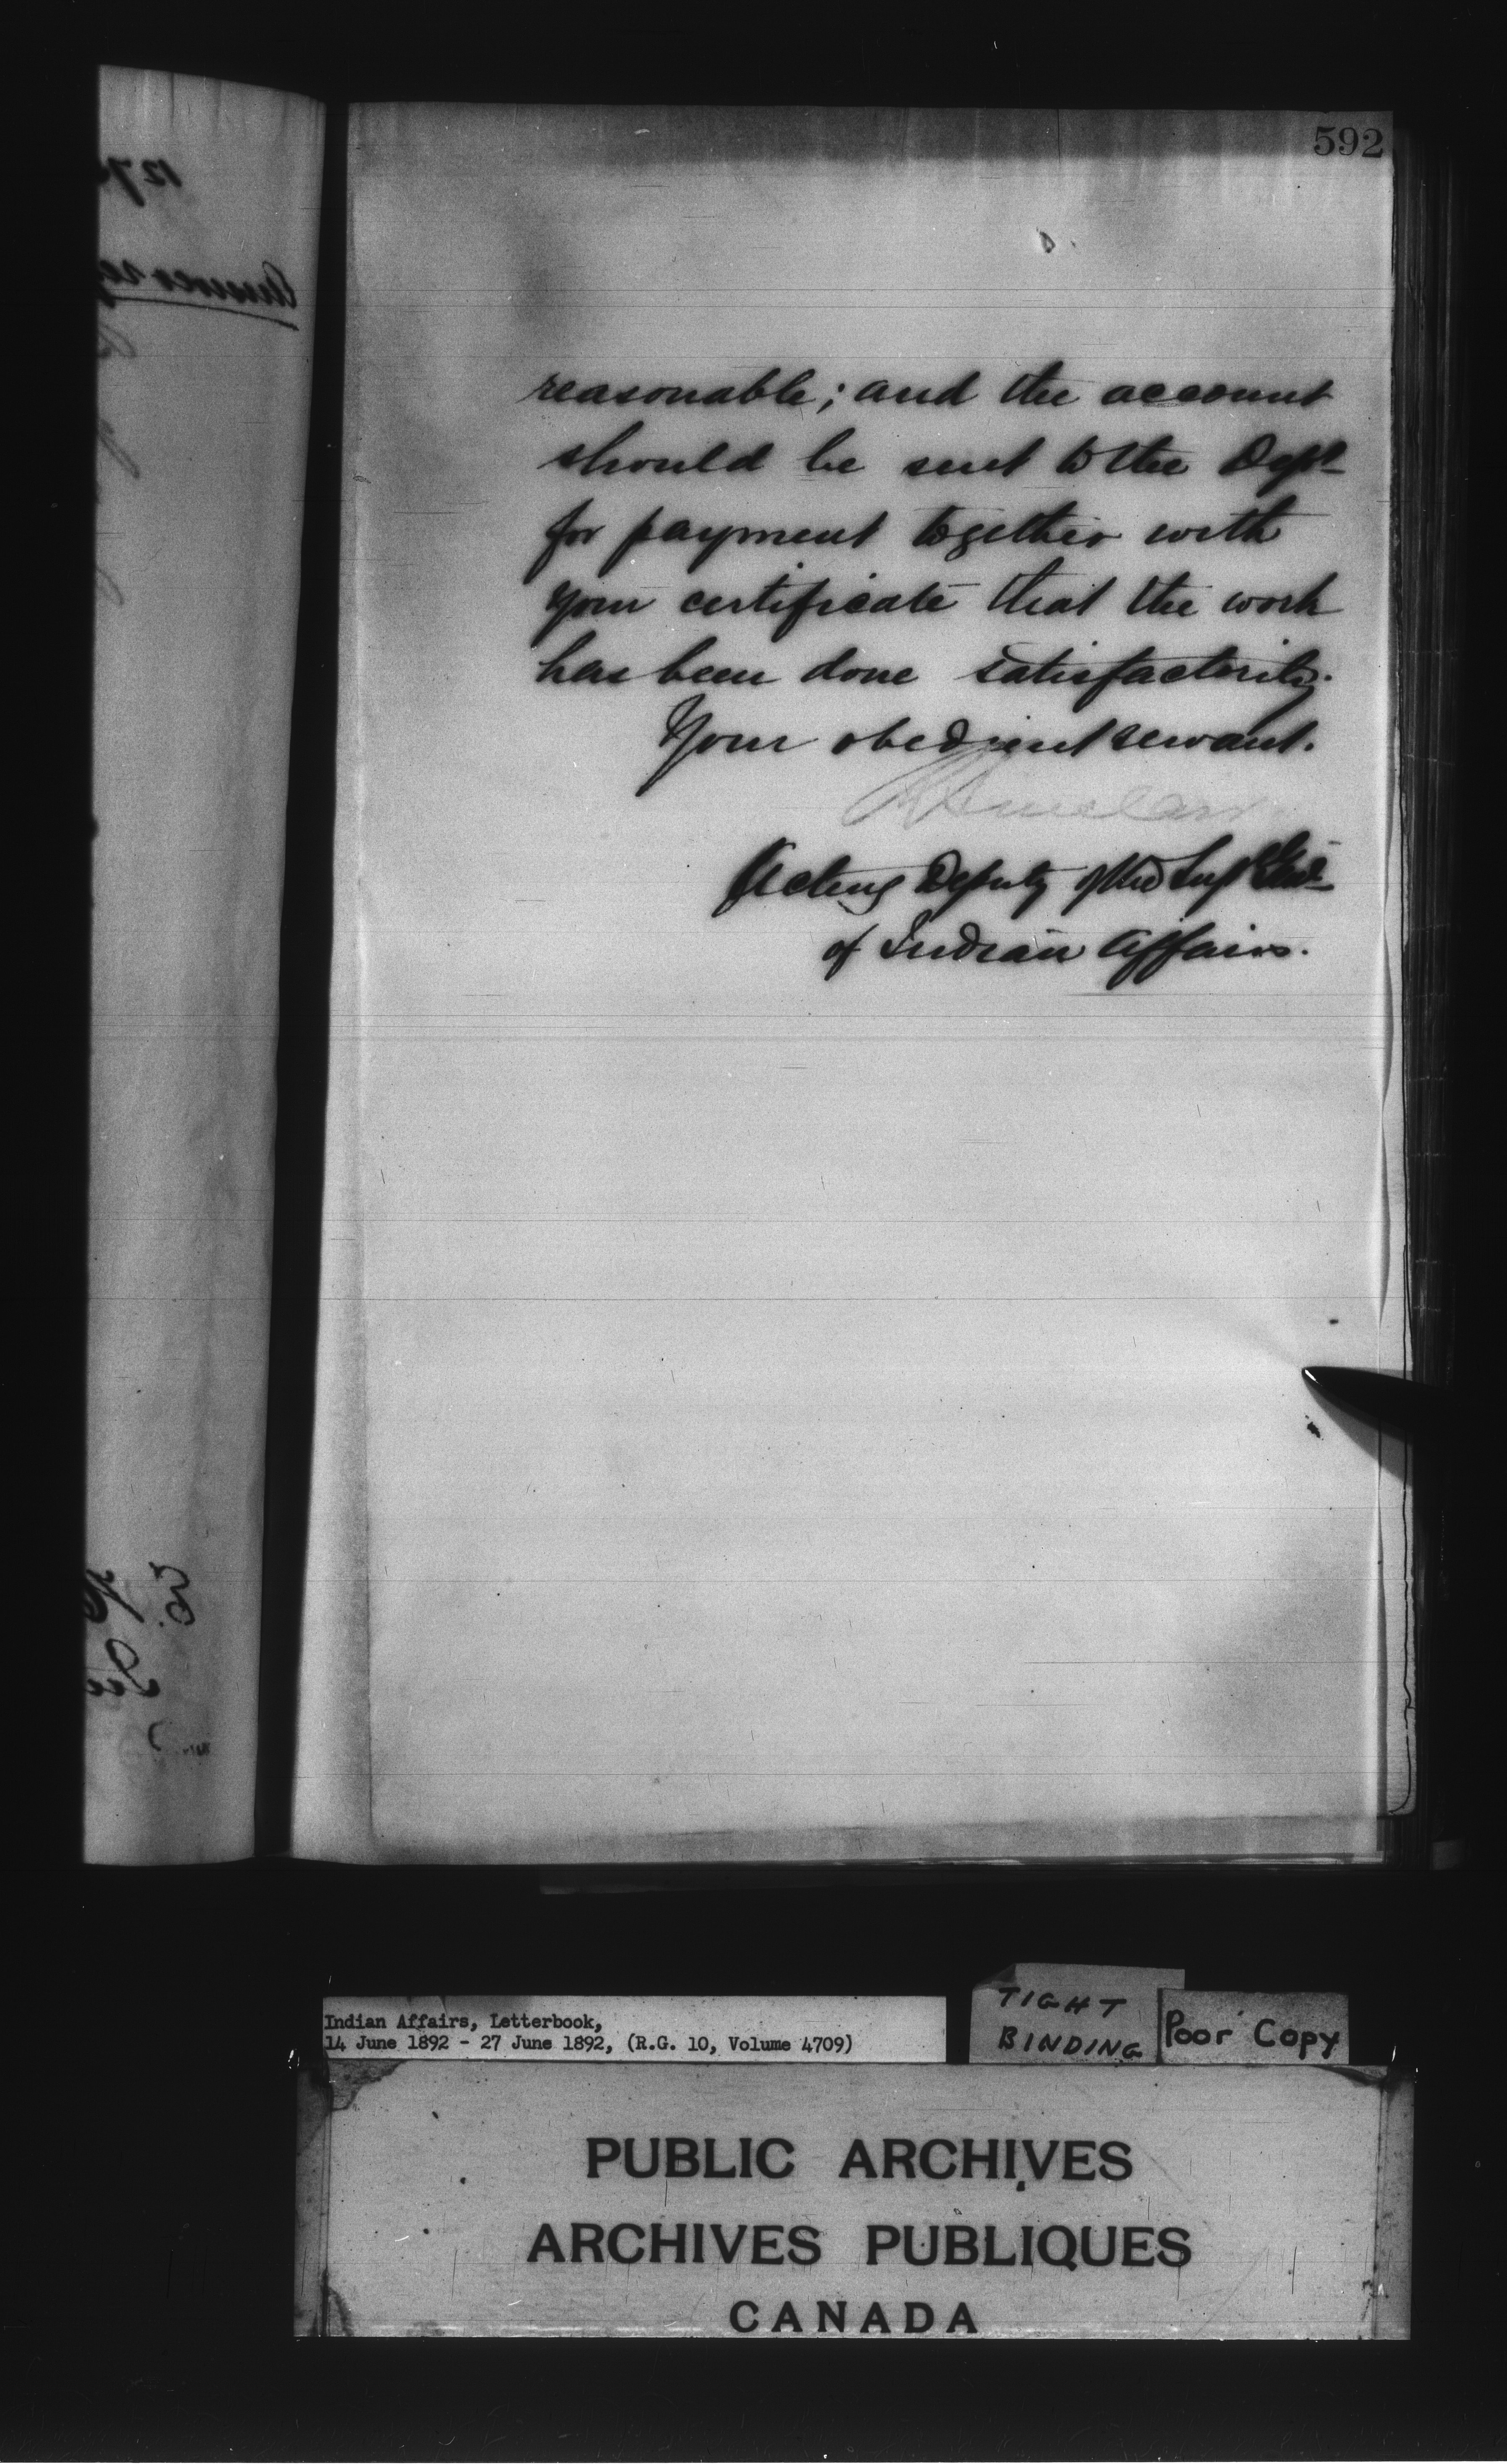 592
reasonable; and the account
should be sent to the Dept
for payment together with
your certificate that the work
has been done satisfactorily.
Your obedient servant.
Acting Deputy of the Supt Genl
of Indian Affairs.
Indian Affairs, Letterbook,
14 June 1892 - 27 June 1892, (R.G. 10, Volume 4709)
TIGHT
BINDING
Poor Copy
PUBLIC ARCHIVES
ARCHIVES PUBLIQUES
CANADA